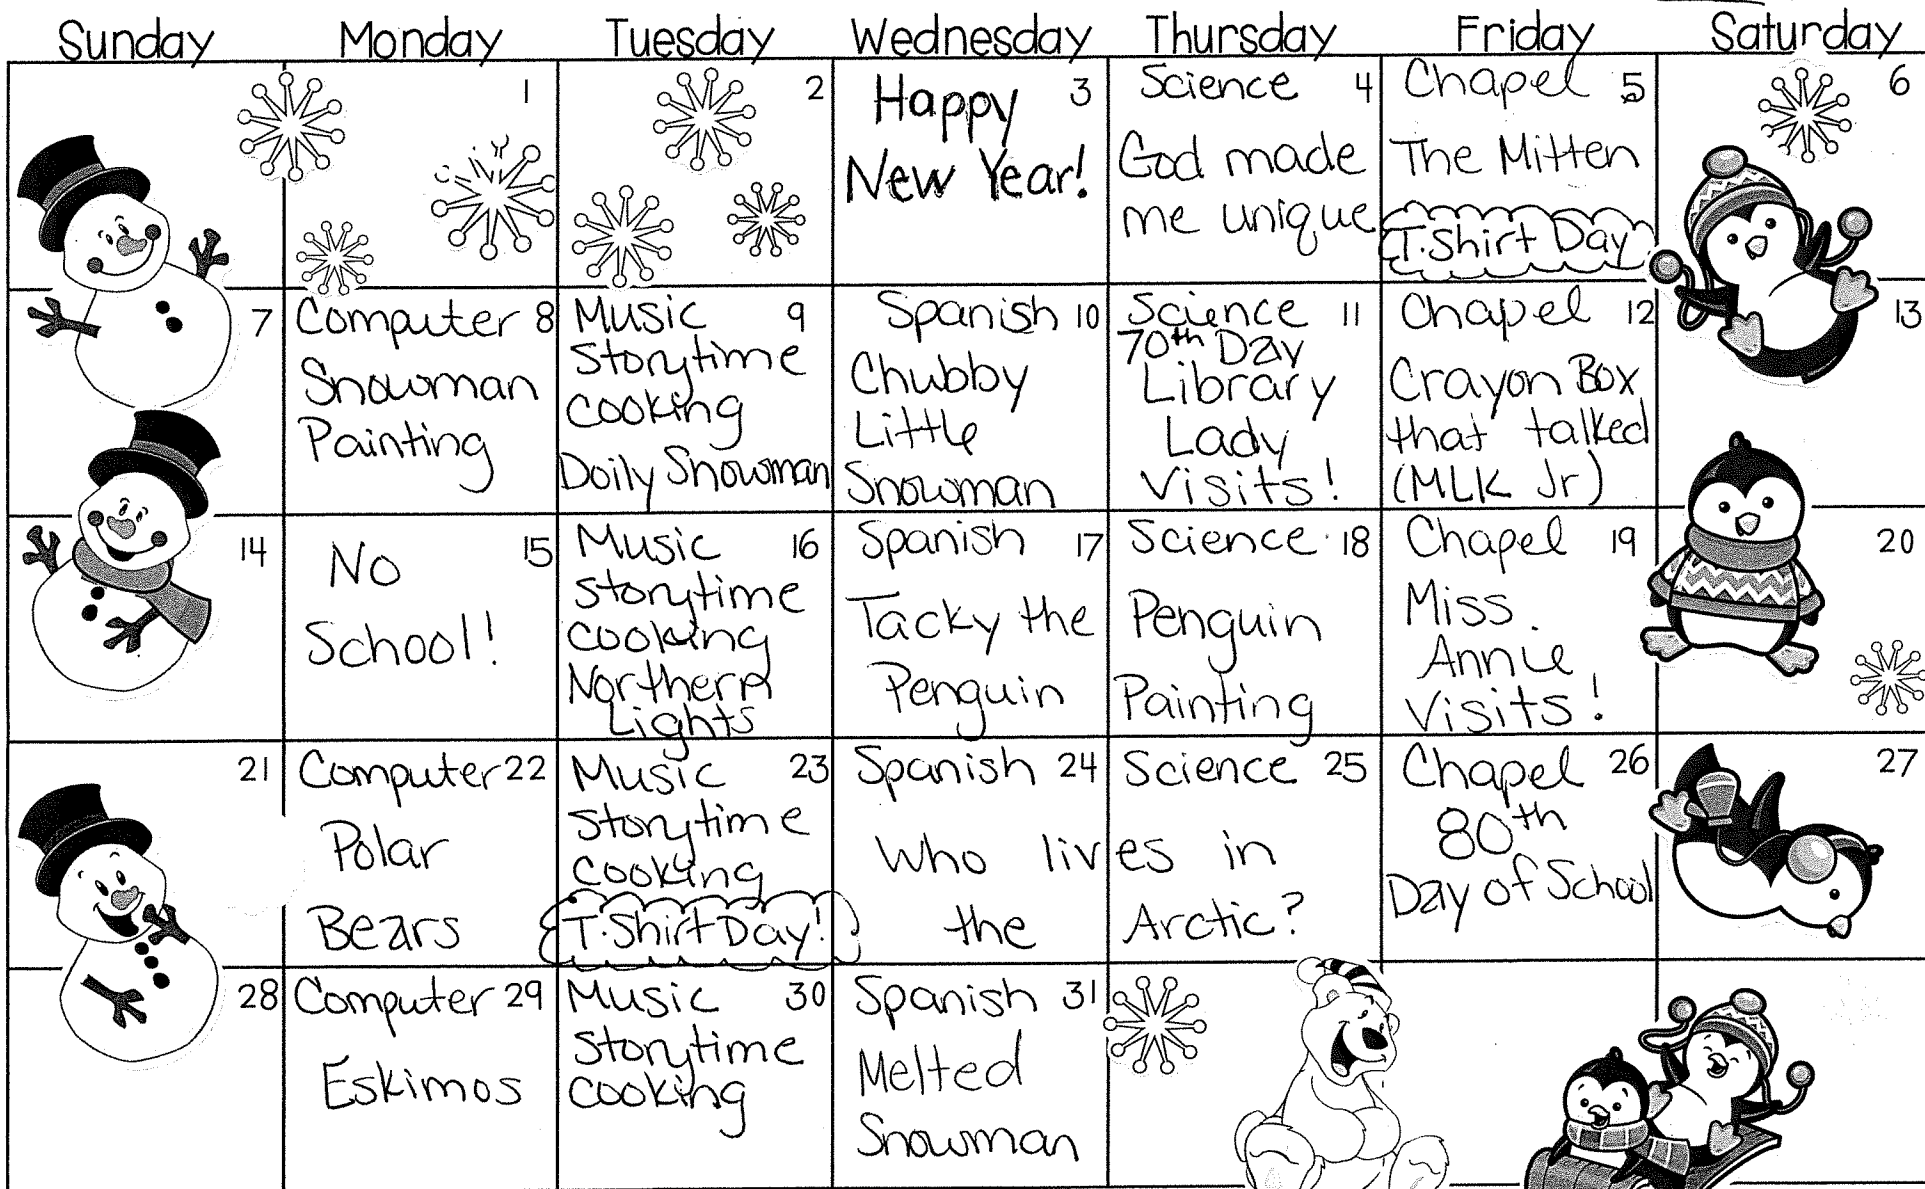 Sunday Monday Tuesday Wednesday Thursday Friday Saturday
1
2
Happy 3
New Year!
Science 4
God made
me unique
Chapel 5
The Mitten
T-Shirt Day
6
7
Computer 8
Snowman
Painting
Music 9
Storytime
Cooking
Doily Snowman
Spanish 10
Chubby
Little
Snowman
Science 11
70th Day
Library
Lady
Visits!
Chapel 12
Crayon Box
that talked
(MLK Jr)
13
14
No 15
School!
Music 16
Storytime
Cooking
Northern
Lights
Spanish 17
Tacky the
Penguin
Science 18
Penguin
Painting
Chapel 19
Miss
Annie
Visits!
20
21
Computer 22
Polar
Bears
Music 23
Storytime
Cooking
T-Shirt Day!
Spanish 24
Science 25
Who lives in
the Arctic?
Chapel 26
80th
Day of School
27
28
Computer 29
Eskimos
Music 30
Storytime
Cooking
Spanish 31
Melted
Snowman